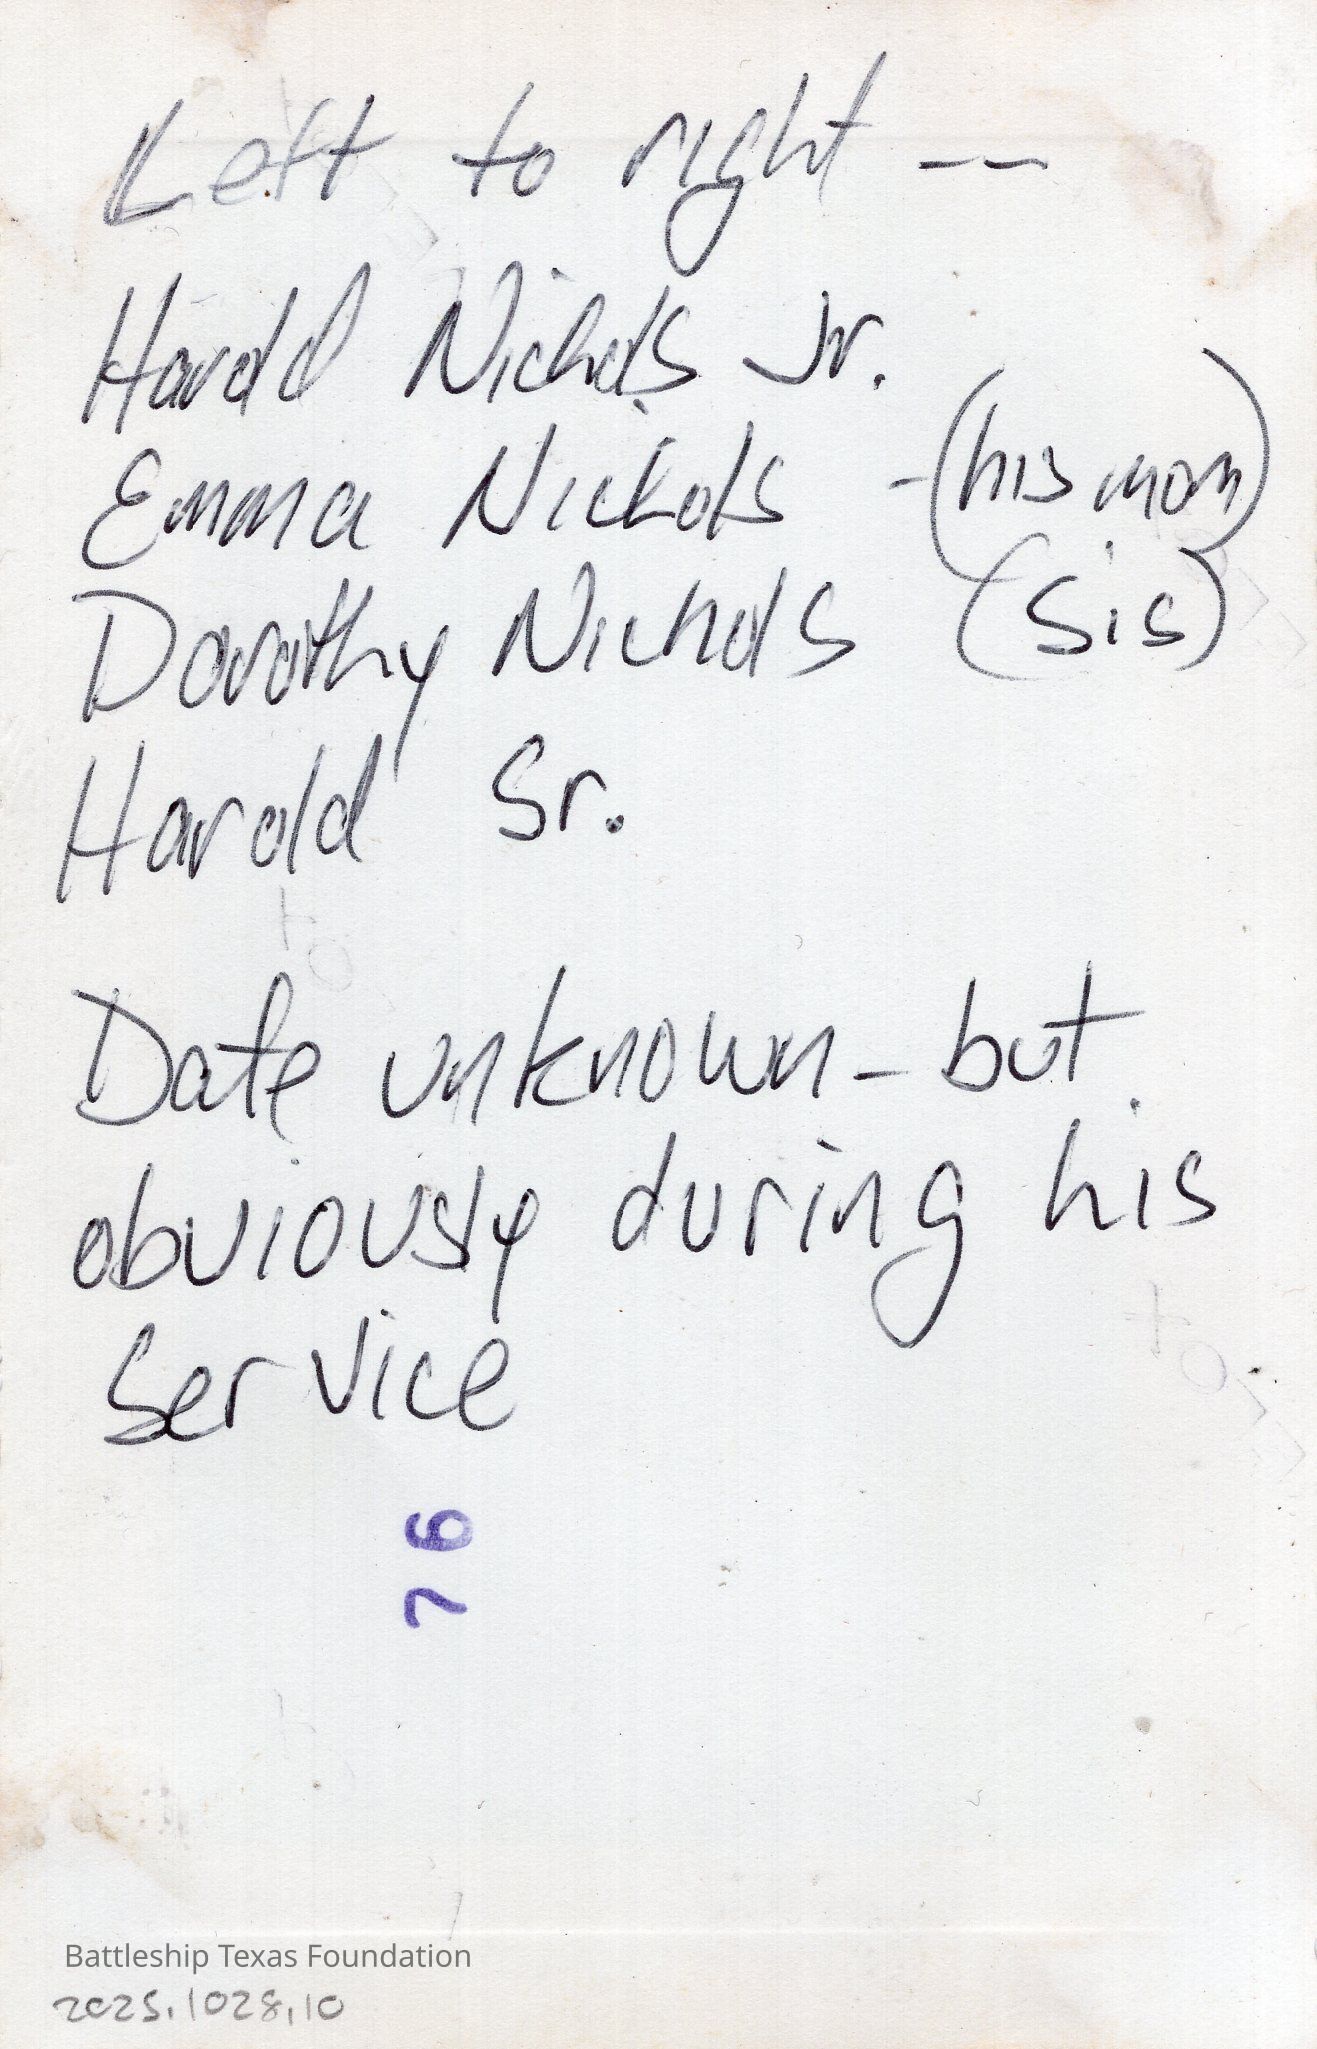 Left to right --
Harold Nichols Jr.
Emma Nichols - (his mom)
Dorothy Nichols (sis)
Harold Sr.
Date unknown - but
obviously during his
service
76
Battleship Texas Foundation
2025.1028.10